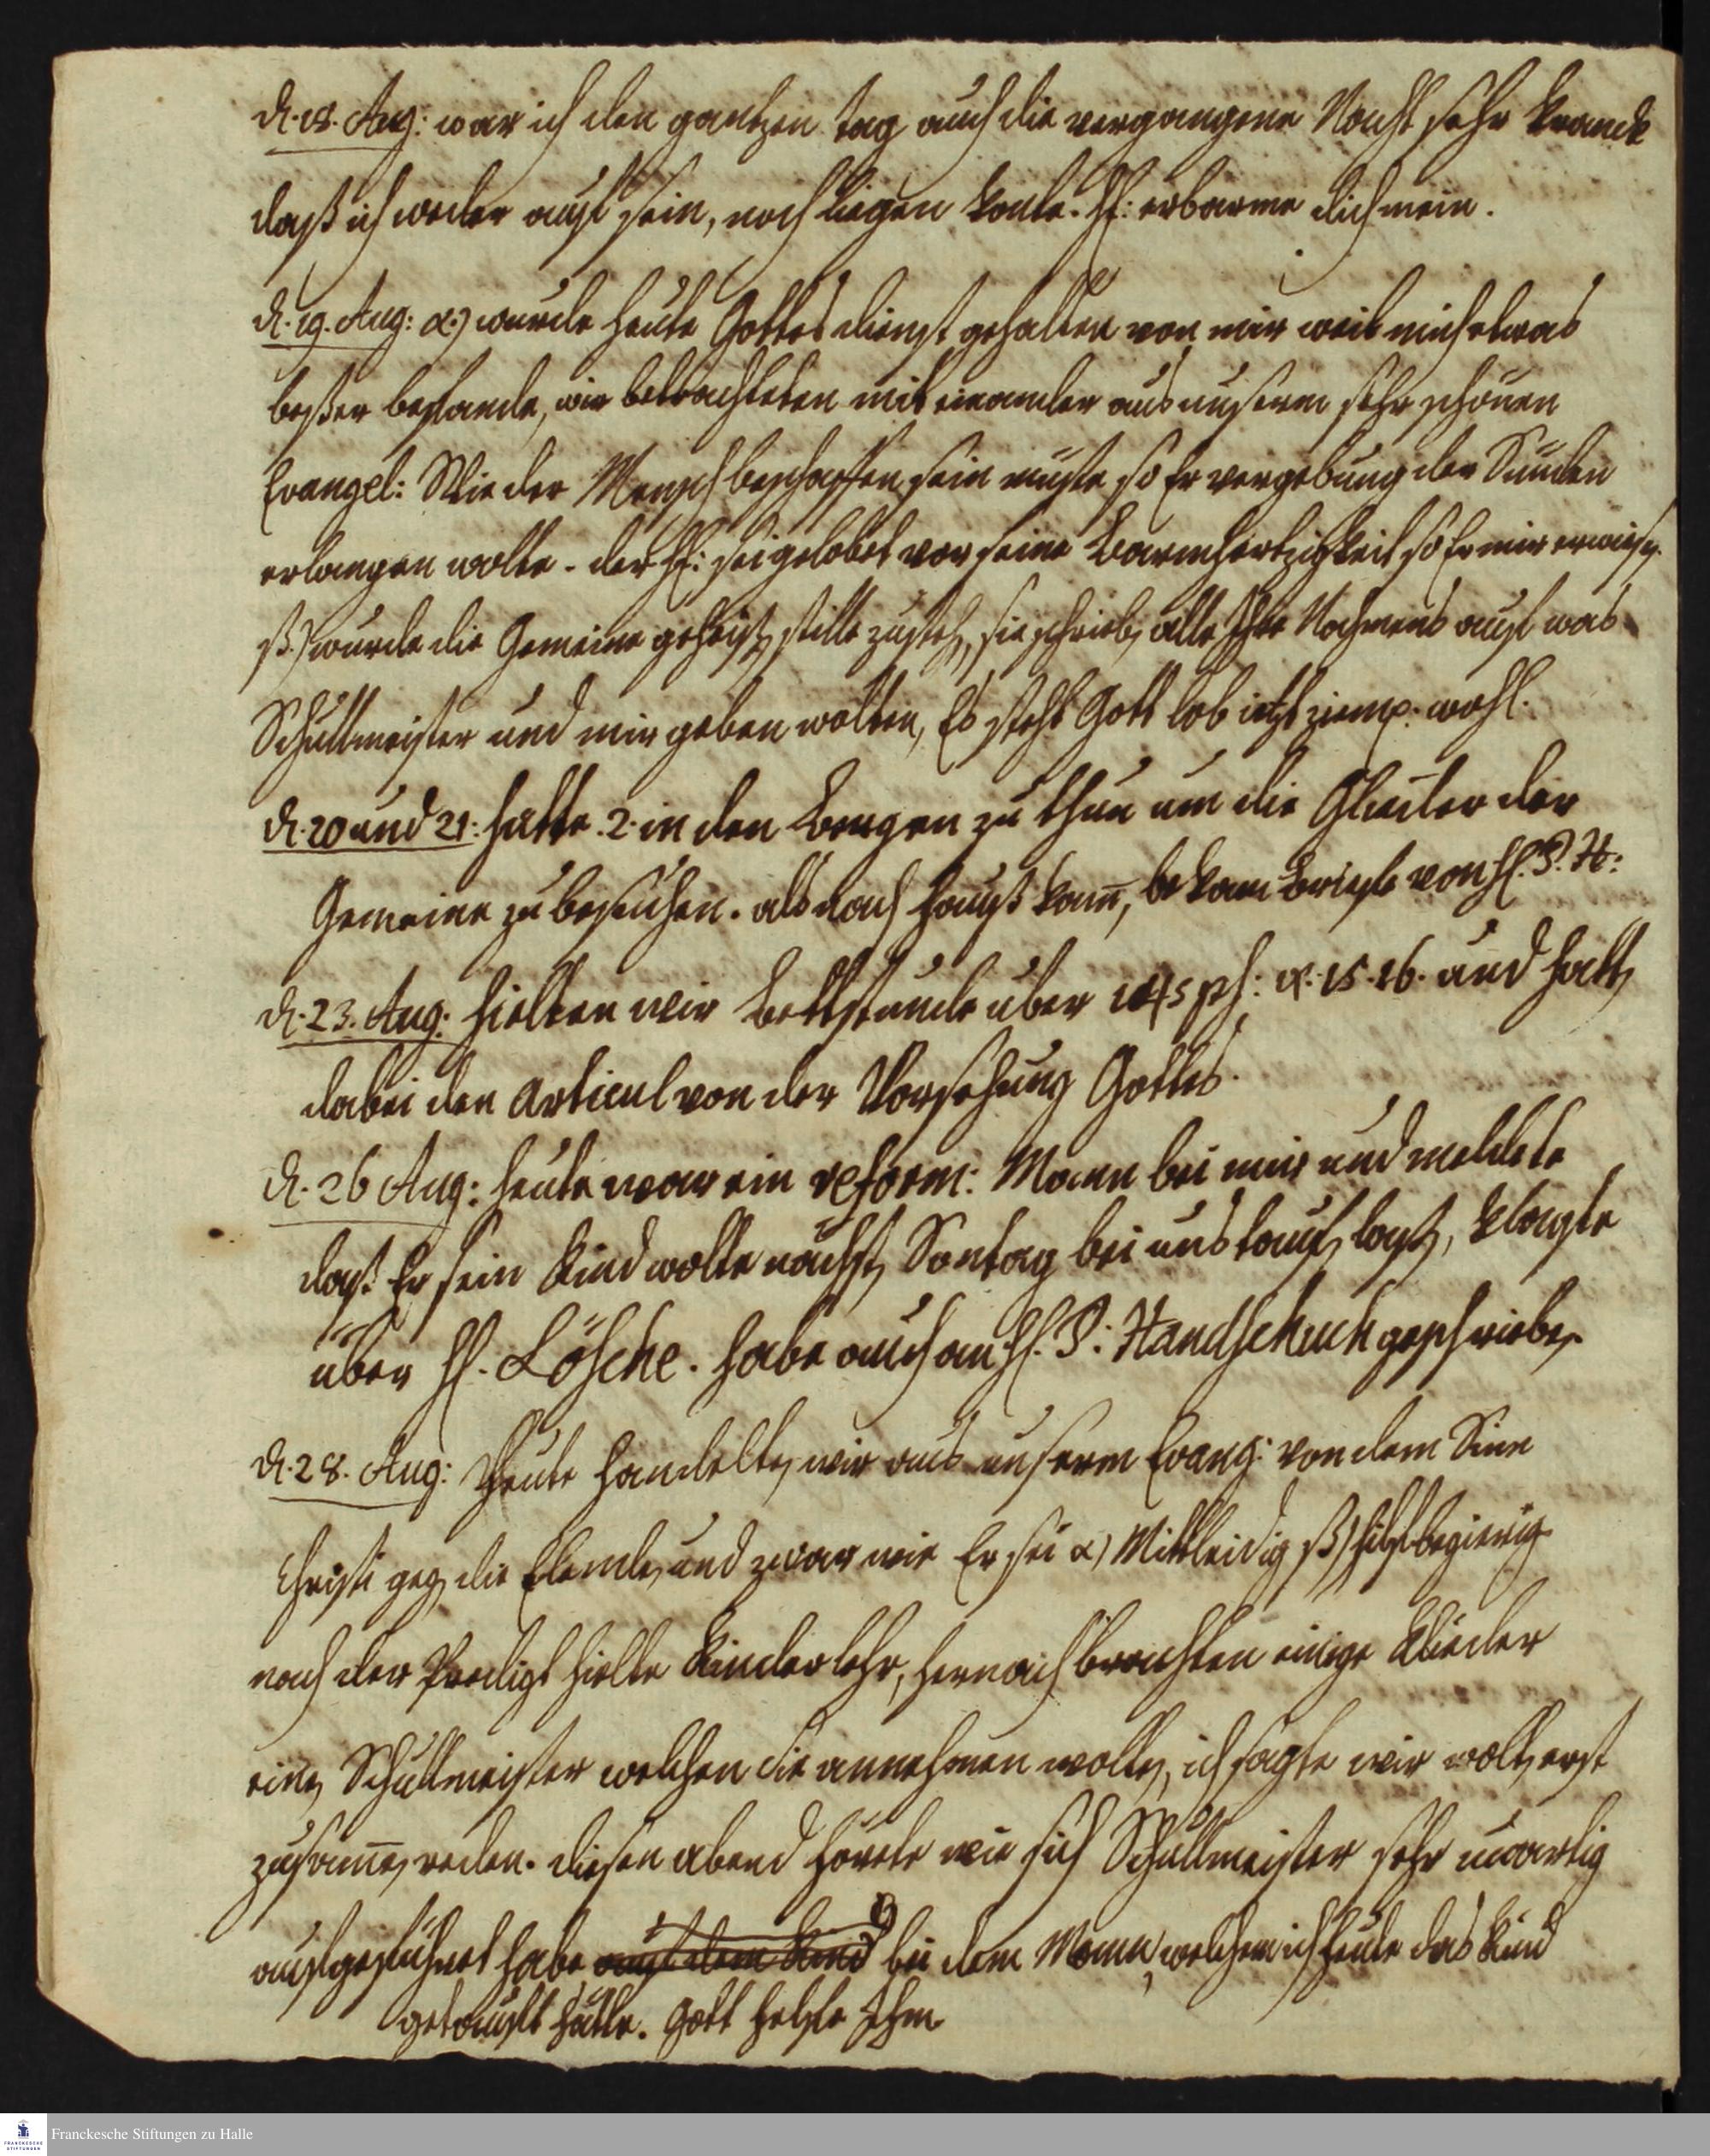 d. 18. Aug: war ich den gantzen tag auch die vergangene Nacht sehr kranck
daß ich weder auf sein, noch liegen konte. H: erbarme dich mein.
d. 19. Aug: α.) wurde heute Gottesdienst gehalten von mir weil mich etwas
beßer befande, wir betrachteten mit einander aus unserm sehr schönen
Evangel: Wie der Mensch beschaffen sein müste so Er vergebung der Sünden
erlangen wolte. der H: sei gelobet vor seine Barmhertzigkeit so Er mir erwiesen.
β.) wurde die Gemeine stille zu stehen, sie schrieben alle Ihre Nahmens auf was
Schullmeister und mir geben wolten, Es steht Gott lob itzt wohl.
d. 20 und 21: hatte 2. in den Bergen zu thun um die Glieder der
Gemeine zu besuchen. als nach Hauß kam, bekam Briefe von H. P. H:
d. 23. Aug: hielten wir Bettstunde über 15. 16. und hatten
dabei den Articul von der Vorsehung Gottes.
d. 26 Aug: heute war ein reform: Mann bei mir und meldete
daß Er sein Kind wolte nächsten Sontag bei uns taufen laßen, klagte
über H. Lösche. habe auch an H. P: Handschuch geschrieben.
d. 28. Aug: Heute handelten wir aus unserm Evang: von dem Sinn
Christi gegen die Elenden und zwar wie Er sei α) Mittleidig β) hilfbegierig
nach der Predigt hielte Kinderlehr, hernach brachten einige Glieder
einen Schullmeister welchen sie annehmen wolten, ich sagte wir wolten erst
zusamen reden. diesen abend hörete wie sich Schullmeister sehr unartig
aufgeführet habe auf dem Kind bei dem Mann, welchem ich heute das Kind
getauft hatte. Gott helfe Ihm
Franckesche Stiftungen zu Halle
FRANCKESCHE
STIFTUNGEN